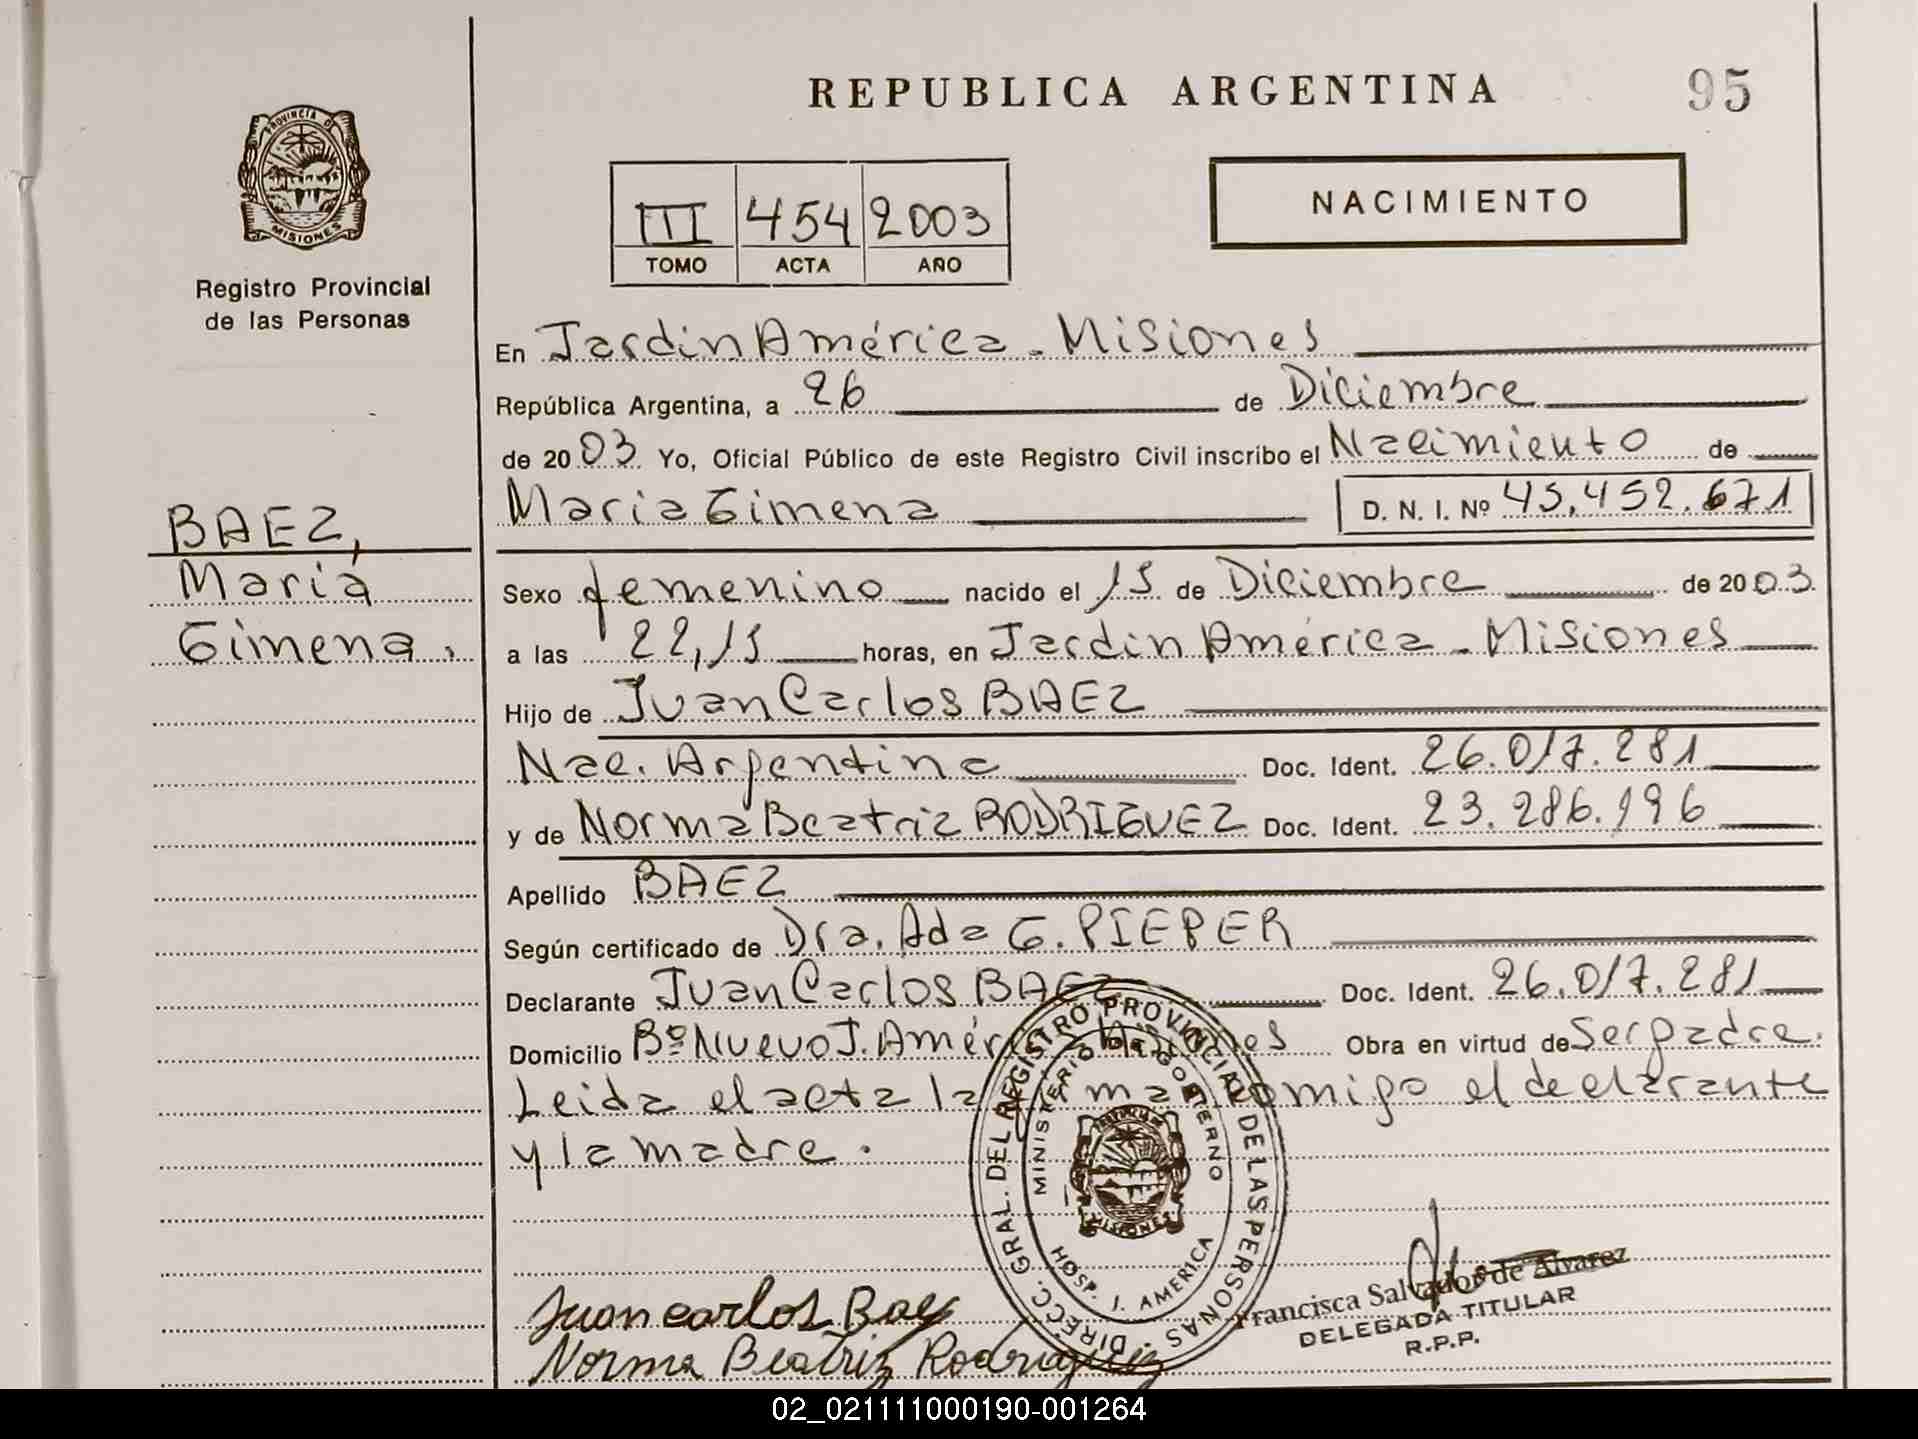 REPUBLICA ARGENTINA
95
PROVINCIA DE
MISIONES
Registro Provincial
de las Personas
III 454 2003
TOMO ACTA AÑO
NACIMIENTO
En Jardin América - Misiones
República Argentina, a 26 de Diciembre
de 2003 Yo, Oficial Público de este Registro Civil inscribo el Nacimiento de
Maria Gimena D. N. I. Nº 45.452.671
BAEZ,
Maria
Gimena.
Sexo femenino nacido el 15 de Diciembre de 2003
a las 22,15 horas, en Jardin América - Misiones
Hijo de Juan Carlos BAEZ
Nac. Argentina Doc. Ident. 26.017.281
y de Norma Beatriz RODRIGUEZ Doc. Ident. 23.286.196
Apellido BAEZ
Según certificado de Dra. Ada G. PIEPER
Declarante Juan Carlos BAEZ Doc. Ident. 26.017.281
Domicilio Bº Nuevo J. América Misiones Obra en virtud de Ser padre.
Leida el acta la firman conmigo el declarante
y la madre.
DIRECC. GRAL. DEL REGISTRO PROVINCIAL DE LAS PERSONAS
MINISTERIO DE GOBIERNO
MISIONES
HOSP. J. AMERICA
Juan carlos Baez
Norma Beatriz Rodriguez
Francisca Salvador de Alvarez
DELEGADA TITULAR
R.P.P.
02_021111000190-001264